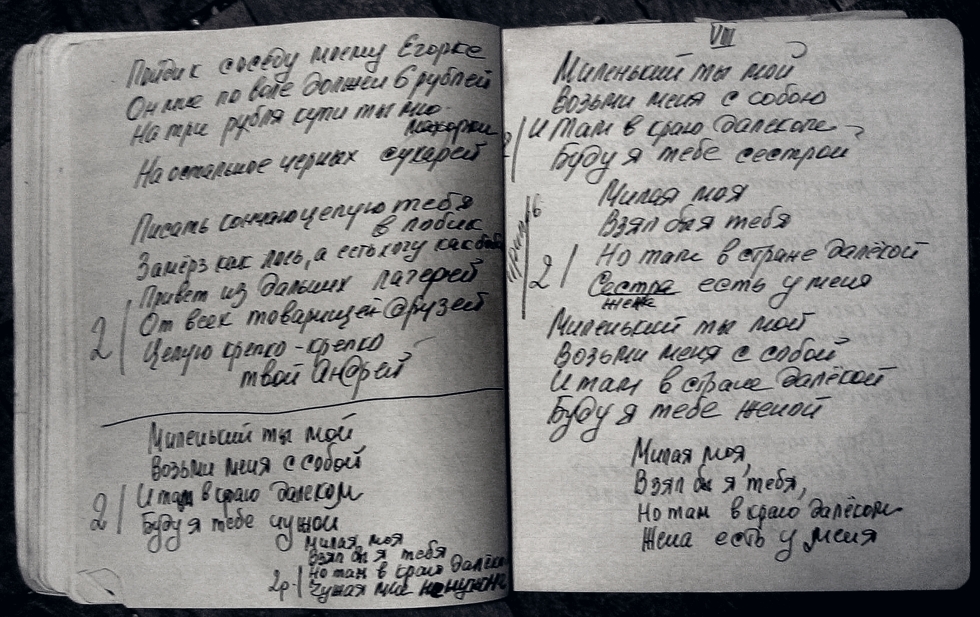 Пойди к соседу моему Егорке
Он мне по воле должен 6 рублей
На три рубля купи ты мне
махорки
На остальное черных сухарей
Писать кончаю целую тебя
в лобик
Замёрз как лось, а есть хочу как бобик
Привет из дальних лагерей
От всех товарищей друзей
2 Целую крепко-крепко
твой Андрей
Миленький ты мой
Возьми меня с собой
И там в краю далеком
2 Буду я тебе чужой
Милая моя
Взял бы я тебя
Но там в краю далёком
2р. Чужая мне не нужна
VIII
Миленький ты мой
Возьми меня с собою
И там в краю далеком
2 Буду я тебе сестрой
Милая моя
Взял бы я тебя
Но там в стране далёкой
2 Сестра есть у меня
жена
Миленький ты мой
Возьми меня с собой
И там в стране далёкой
Буду я тебе женой
Милая моя,
Взял бы я тебя,
Но там в краю далёком
Жена есть у меня